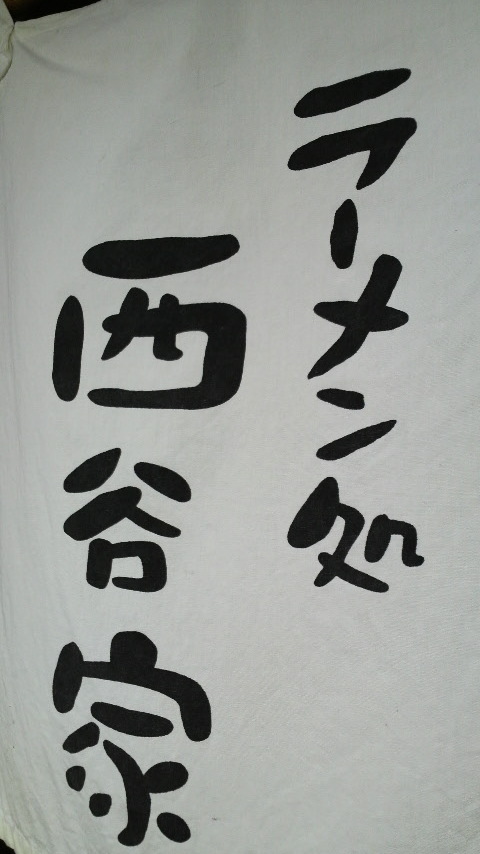 ラーメン処
西谷家